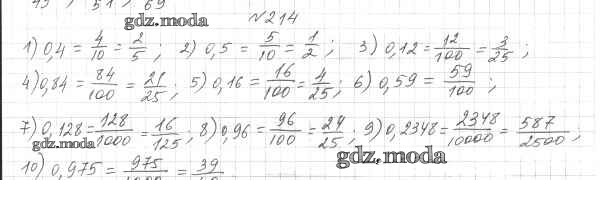 51 69
gdz.moda
№214
1) 0,4 = 4/10 = 2/5 ; 2) 0,5 = 5/10 = 1/2 ; 3) 0,12 = 12/100 = 3/25 ;
4) 0,84 = 84/100 = 21/25 ; 5) 0,16 = 16/100 = 4/25 ; 6) 0,59 = 59/100 ;
7) 0,128 = 128/1000 = 16/125 ; 8) 0,96 = 96/100 = 24/25 ; 9) 0,2348 = 2348/10000 = 587/2500 ;
gdz.moda
gdz.moda
10) 0,975 = 975/1000 = 39/